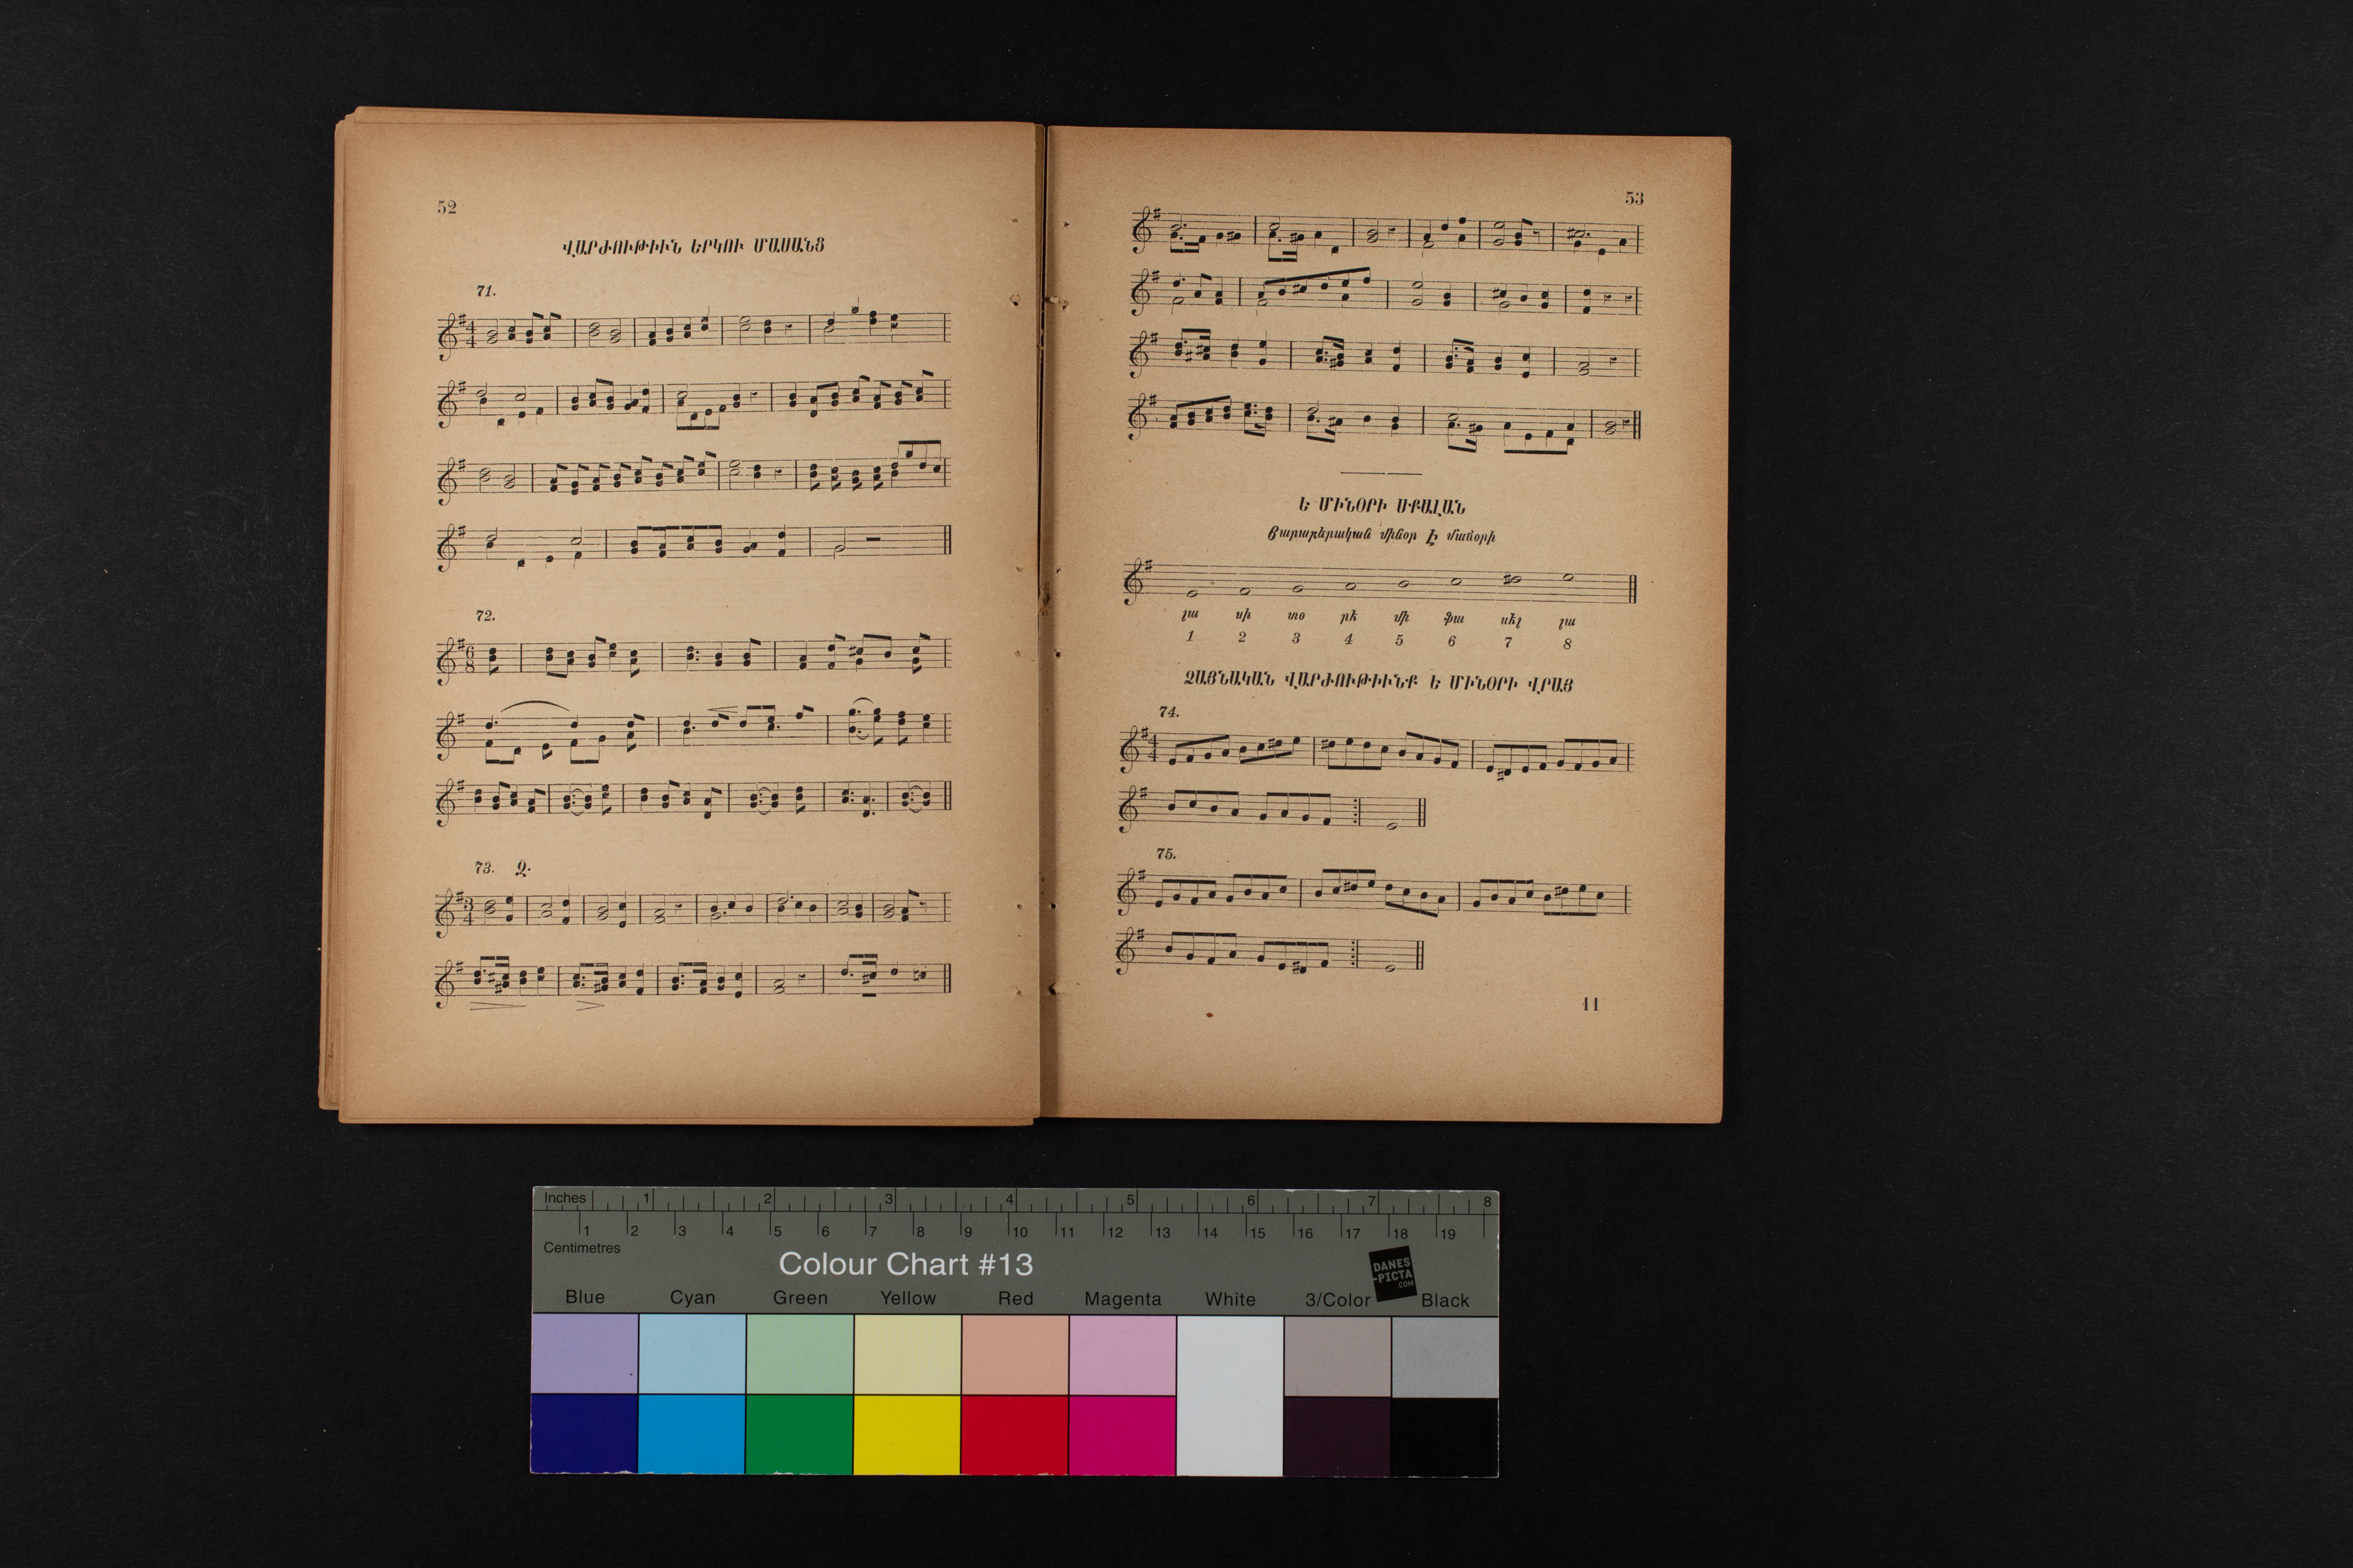 52
ՎԱՐԺՈՒԹԻՒՆ ԵՐԿՈՒ ՄԱՍԱՆՑ
71.
4
4
72.
6
8
73. Զ.
3
4
53
Ե ՄԻՆՕՐԻ ՍՔԱԼԱՆ
Յարաբերական մինօր է մաժօրի
լա սի տօ րէ մի ֆա սէլ լա
1 2 3 4 5 6 7 8
ՁԱՅՆԱԿԱՆ ՎԱՐԺՈՒԹԻՒՆՔ Ե ՄԻՆՕՐԻ ՎՐԱՅ
74.
4
4
75.
11
Inches 1 2 3 4 5 6 7 8
1 2 3 4 5 6 7 8 9 10 11 12 13 14 15 16 17 18 19
Centimetres
Colour Chart #13
DANES
-PICTA
.COM
Blue Cyan Green Yellow Red Magenta White 3/Color Black